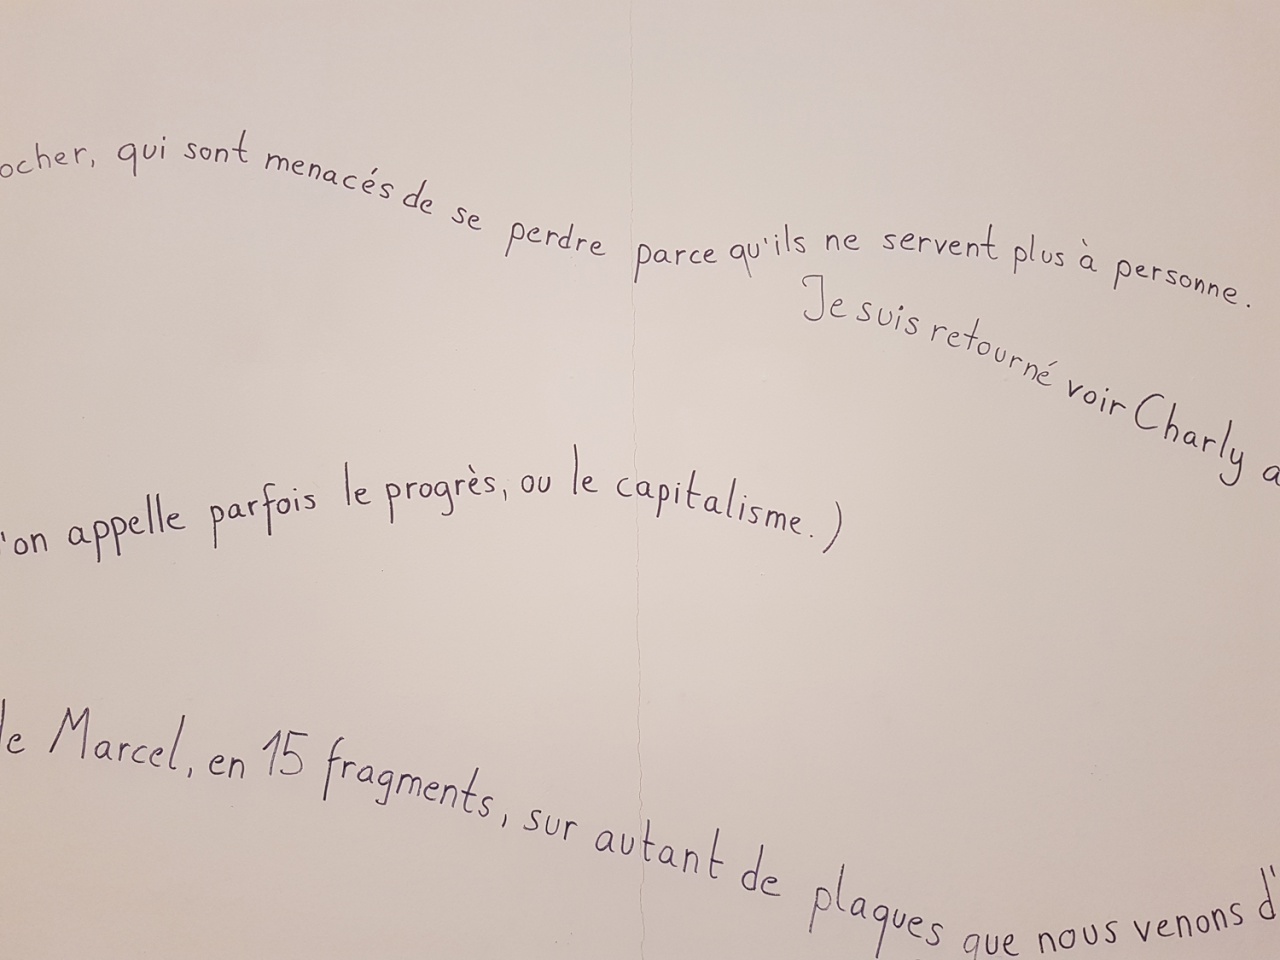 ocher, qui sont menacés de se perdre parce qu'ils ne servent plus à personne.
Je suis retourné voir Charly a
'on appelle parfois le progrès, ou le capitalisme.)
le Marcel, en 15 fragments, sur autant de plaques que nous venons d'